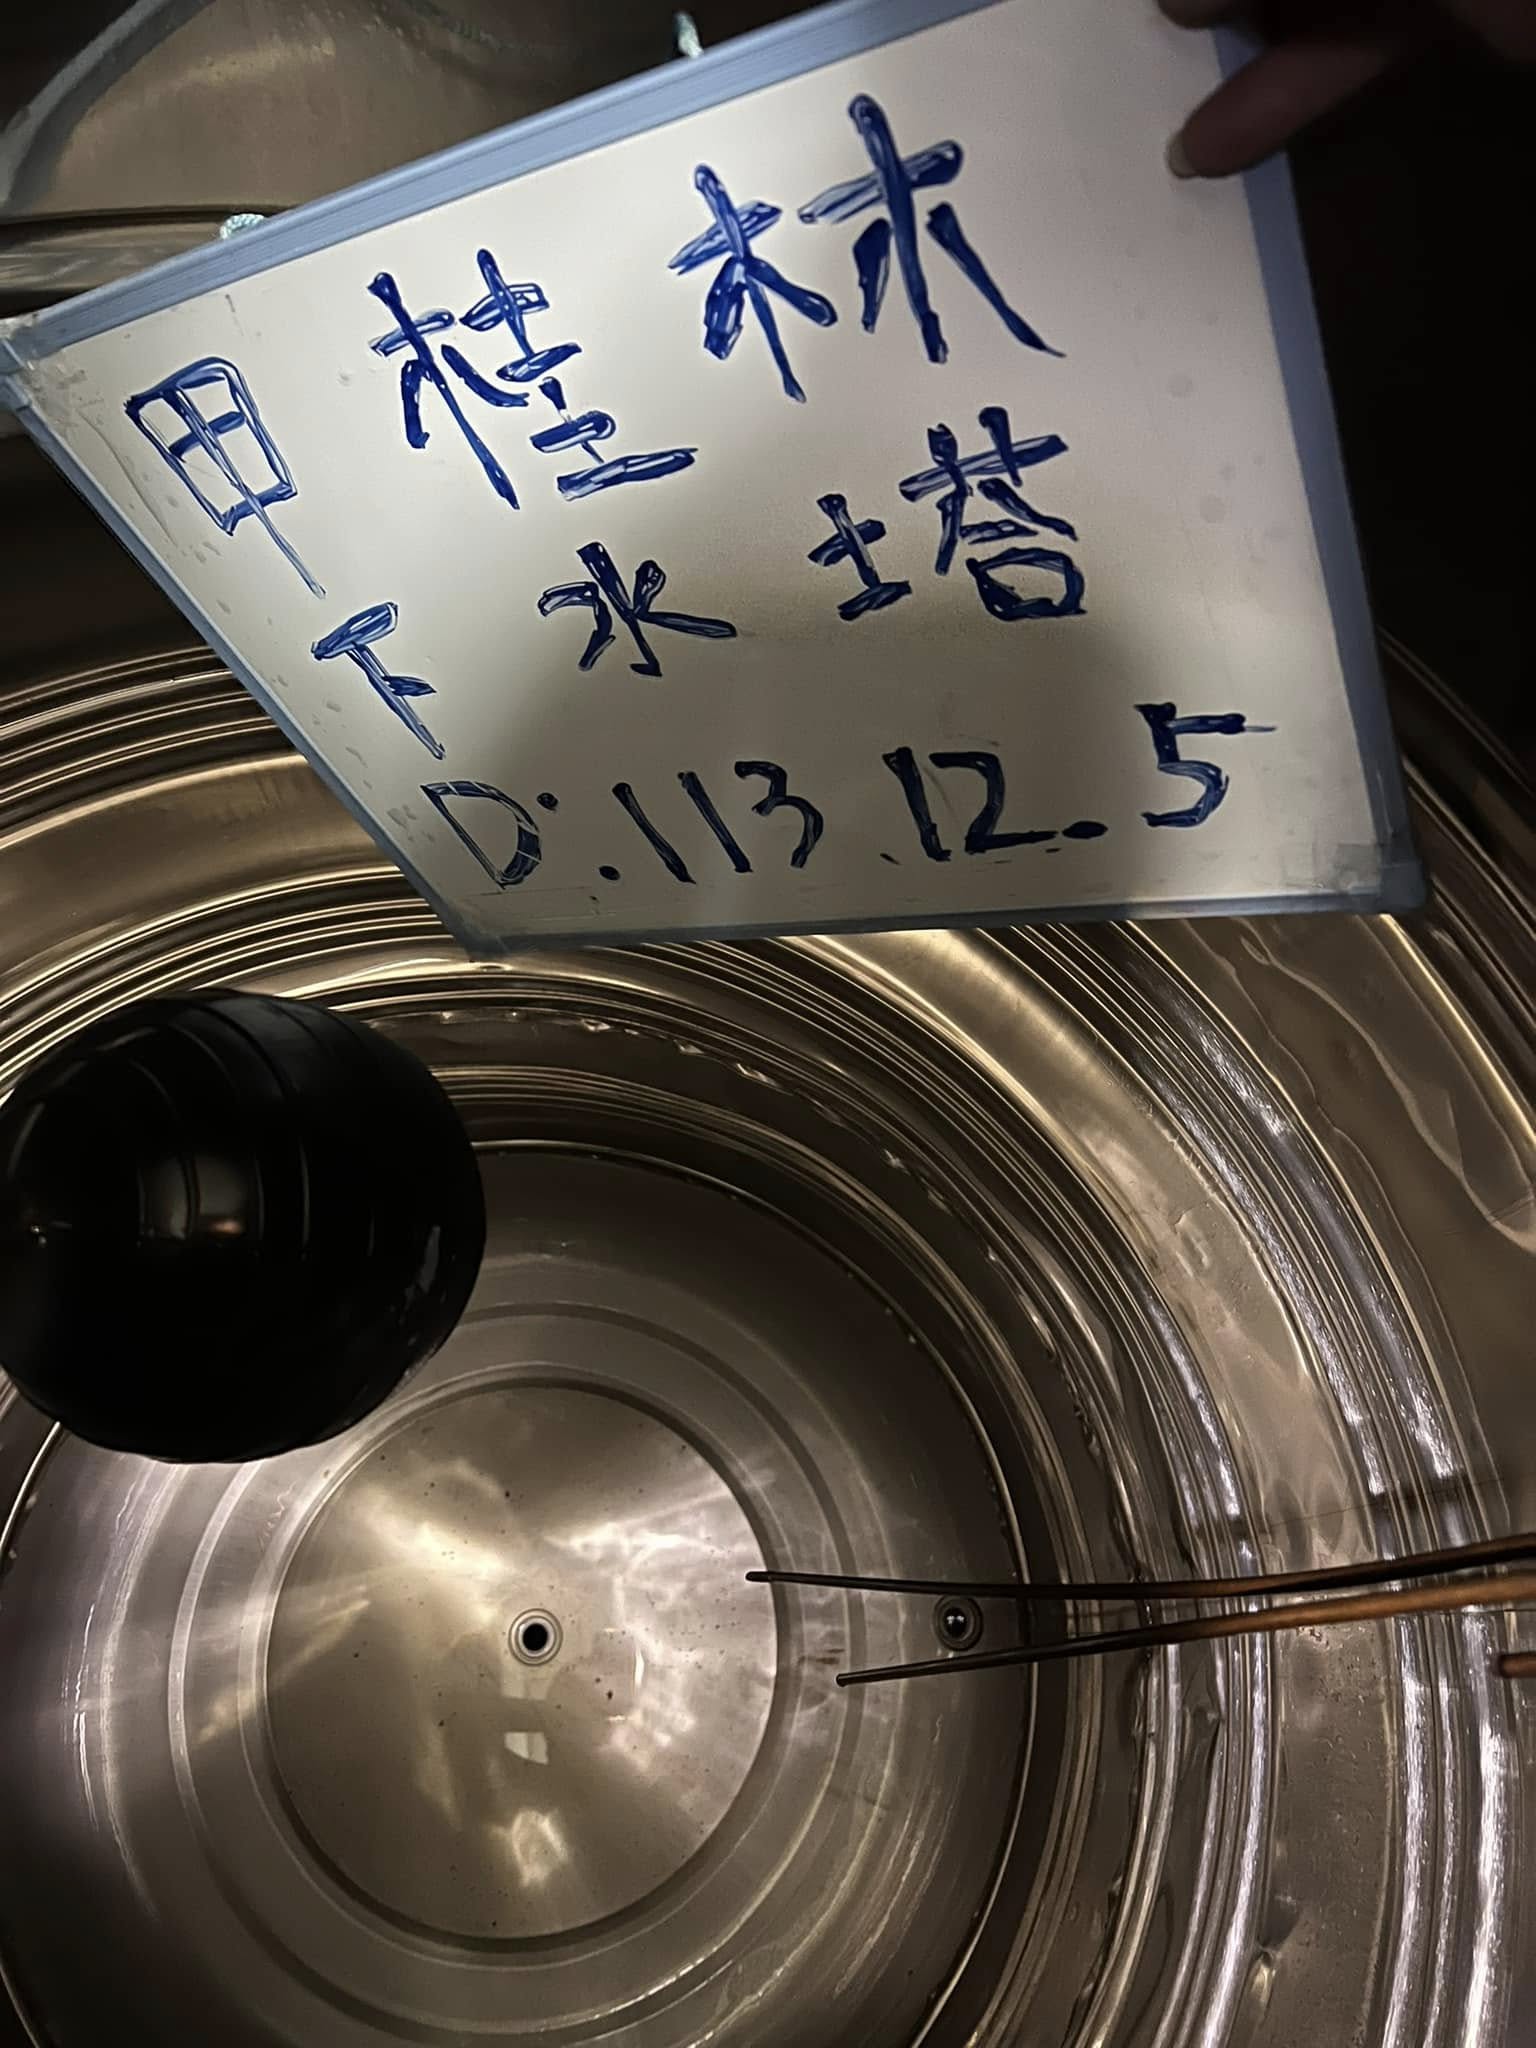 甲桂林
下水塔
D:.113.12.5